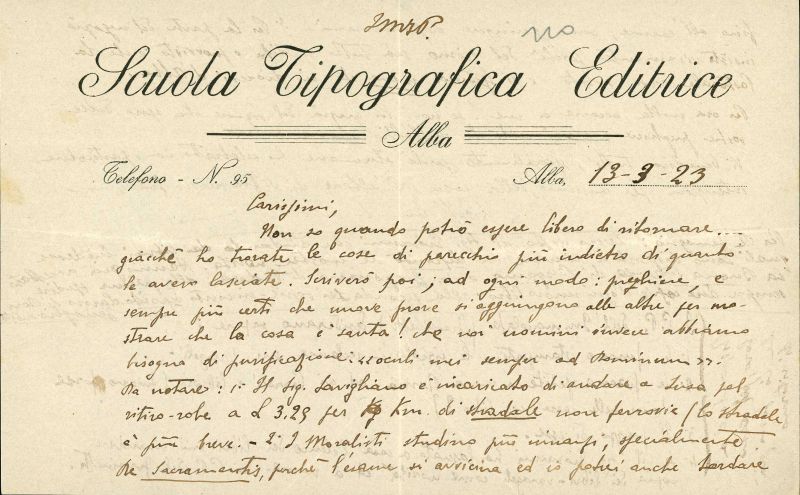 no
Scuola Tipografica Editrice
Alba
Telefono - N. 95
Alba, 13-3-23
Carissimi,
Non so quando potrò essere libero di ritornare....
giacchè ho trovate le cose di parecchio più indietro di quanto
le avevo lasciate. Scriverò poi; ad ogni modo: preghiere, e
sempre più certi che nuove prove si aggiungono alle altre per mo-
strare che la cosa è santa! che noi uomini invece abbiamo
bisogno di purificazione: «oculi mei semper ad Dominum».
Da notare: 1- Il Sig. Savigliano è incaricato di andare a Susa pel
ritiro-robe a L 3.25 per Km. di stradale non ferrovia (lo stradale
è più breve. - 2- I Moralisti studino più innanzi, specialmente
De Sacramentis, perchè l'esame si avvicina ed io potrei anche tardare